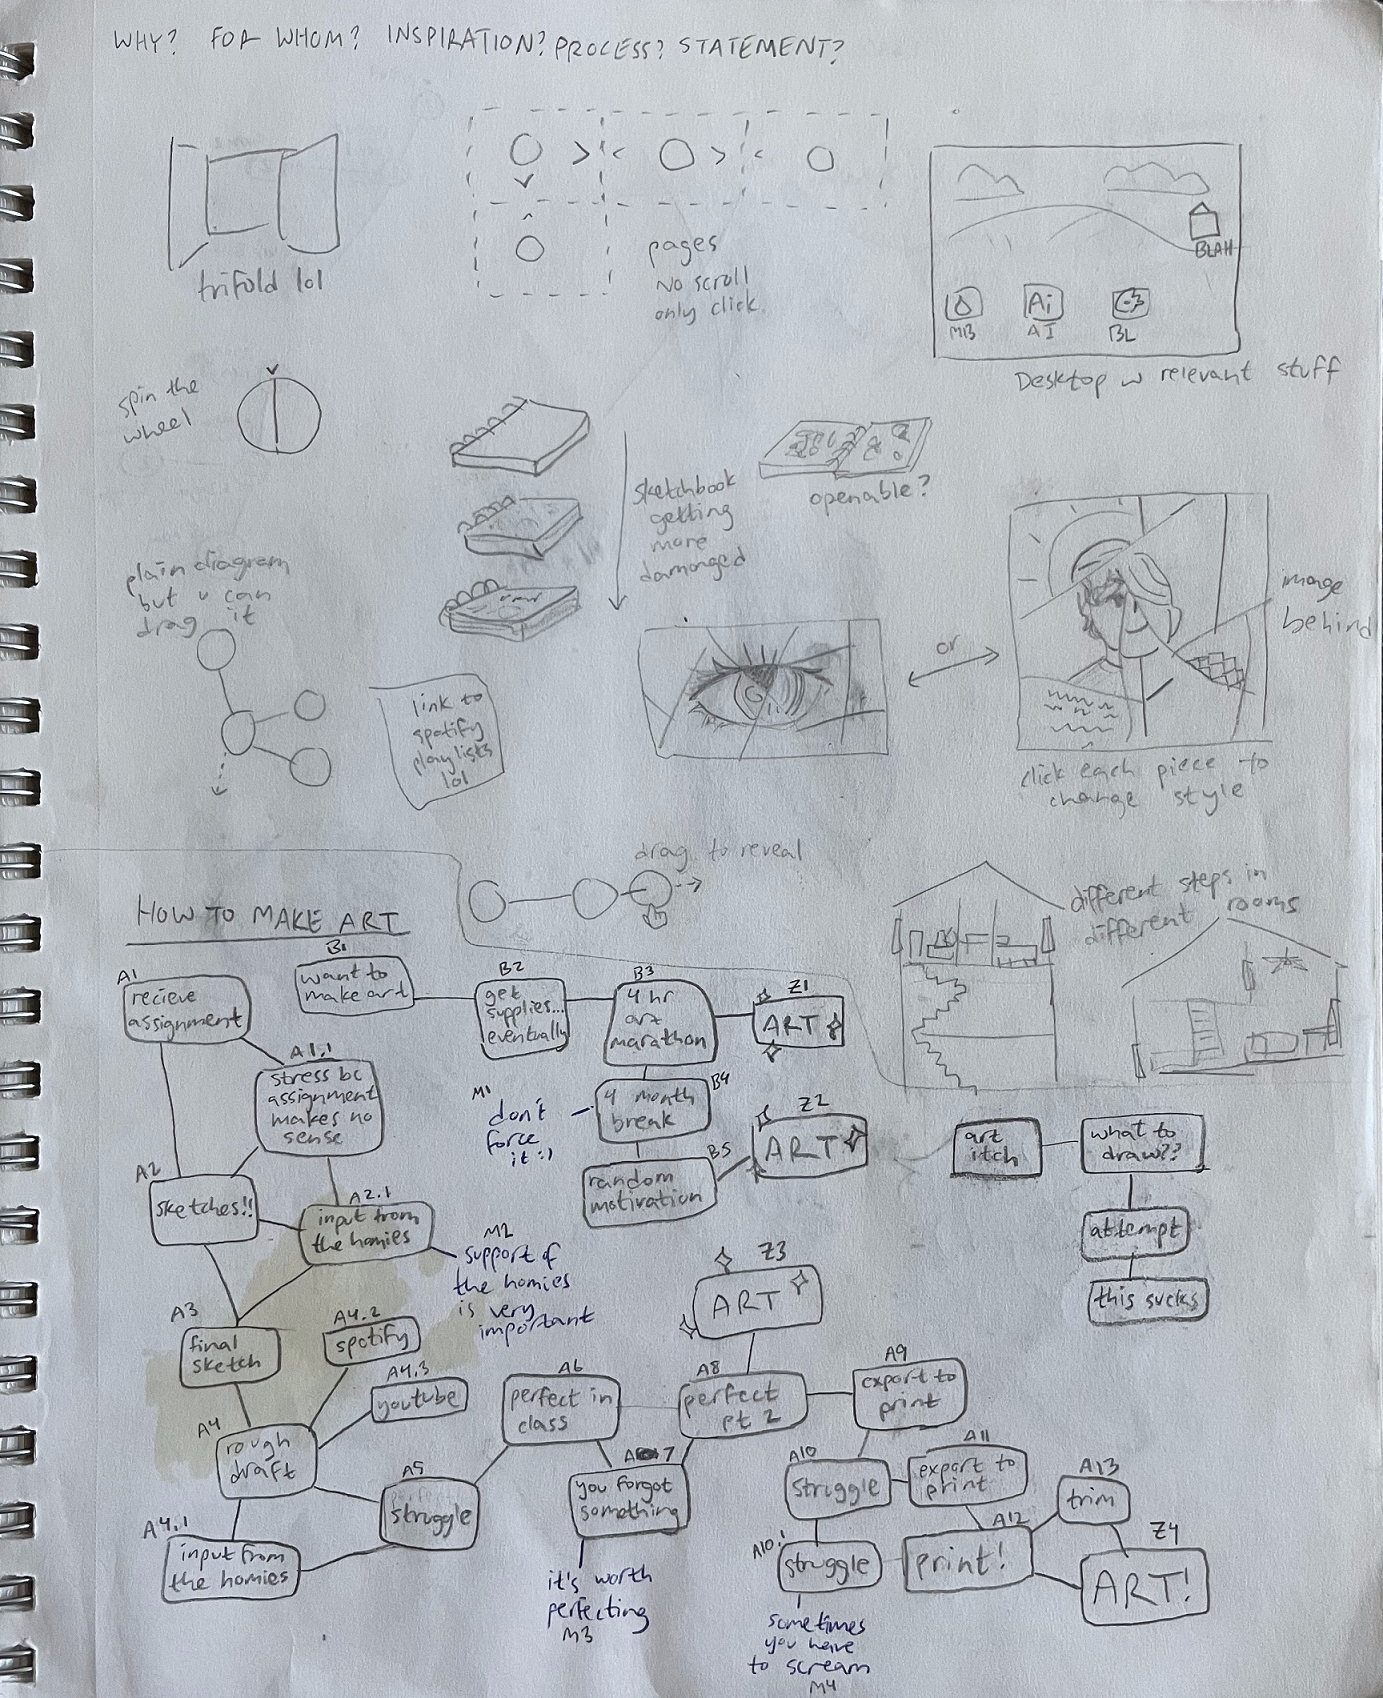 WHY? FOR WHOM? INSPIRATION? PROCESS? STATEMENT?
trifold lol
pages
No scroll
only click.
BLAH
MB
Ai
AI
BL
Desktop w relevant stuff
spin the
wheel
sketchbook
getting
more
damanged
openable?
plain diagram
but u can
drag it
link to
spotify
playlists
lol
or
image
behind
click each piece to
change style
drag to reveal
different steps in
different rooms
HOW TO MAKE ART
A1
recieve
assignment
B1
want to
make art
B2
get
supplies...
eventually
B3
4 hr
art
marathon
Z1
ART
A1.1
stress bc
assignment
makes no
sense
M1
don't
force
it :)
B4
4 month
break
B5
random
motivation
Z2
ART
art
itch
what to
draw??
attempt
this sucks
A2
sketches!!
A2.1
input from
the homies
M2
support of
the homies
is very
important
Z3
ART
A3
final
sketch
A4.2
spotify
A4.3
youtube
A4
rough
draft
A4.1
input from
the homies
A5
struggle
A6
perfect in
class
A7
you forgot
something
it's worth
perfecting
M3
A8
perfect
pt 2
A9
export to
print
A10
struggle
A10.1
struggle
sometimes
you have
to scream
M4
A11
export to
print
A12
print!
A13
trim
Z4
ART!